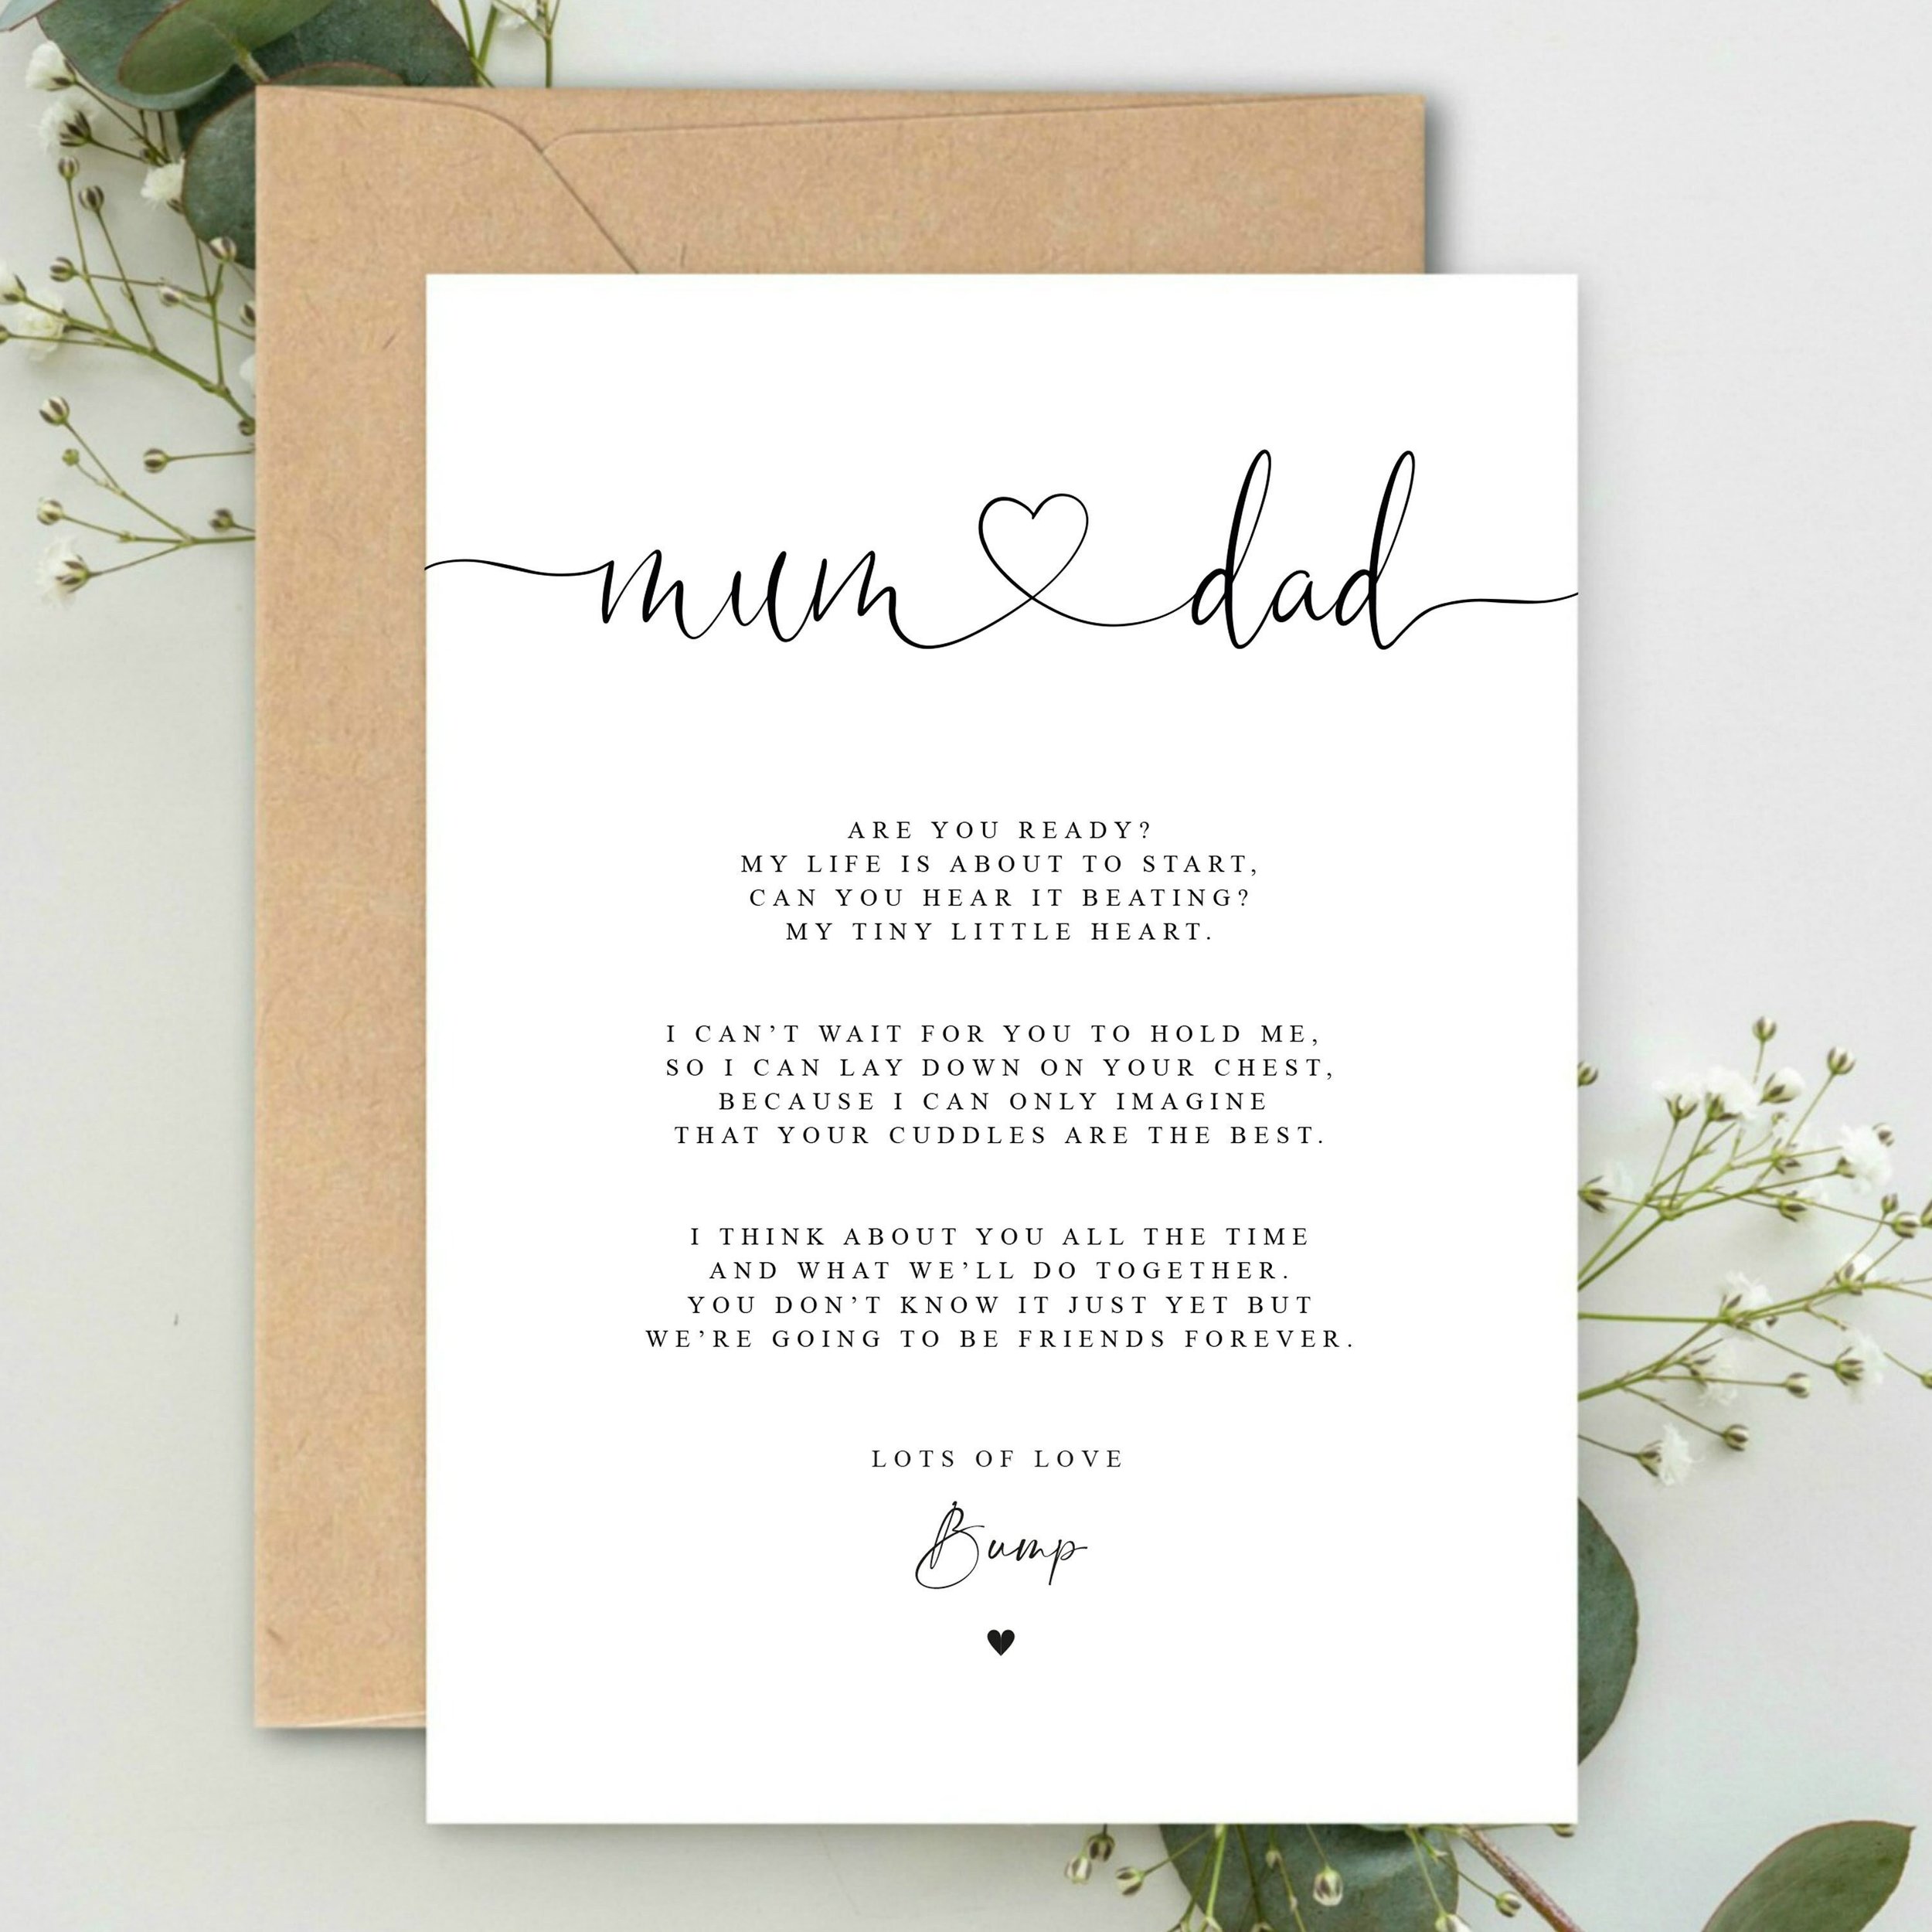 mum dad
ARE YOU READY?
MY LIFE IS ABOUT TO START,
CAN YOU HEAR IT BEATING?
MY TINY LITTLE HEART.
I CAN’T WAIT FOR YOU TO HOLD ME,
SO I CAN LAY DOWN ON YOUR CHEST,
BECAUSE I CAN ONLY IMAGINE
THAT YOUR CUDDLES ARE THE BEST.
I THINK ABOUT YOU ALL THE TIME
AND WHAT WE’LL DO TOGETHER.
YOU DON’T KNOW IT JUST YET BUT
WE’RE GOING TO BE FRIENDS FOREVER.
LOTS OF LOVE
Bump